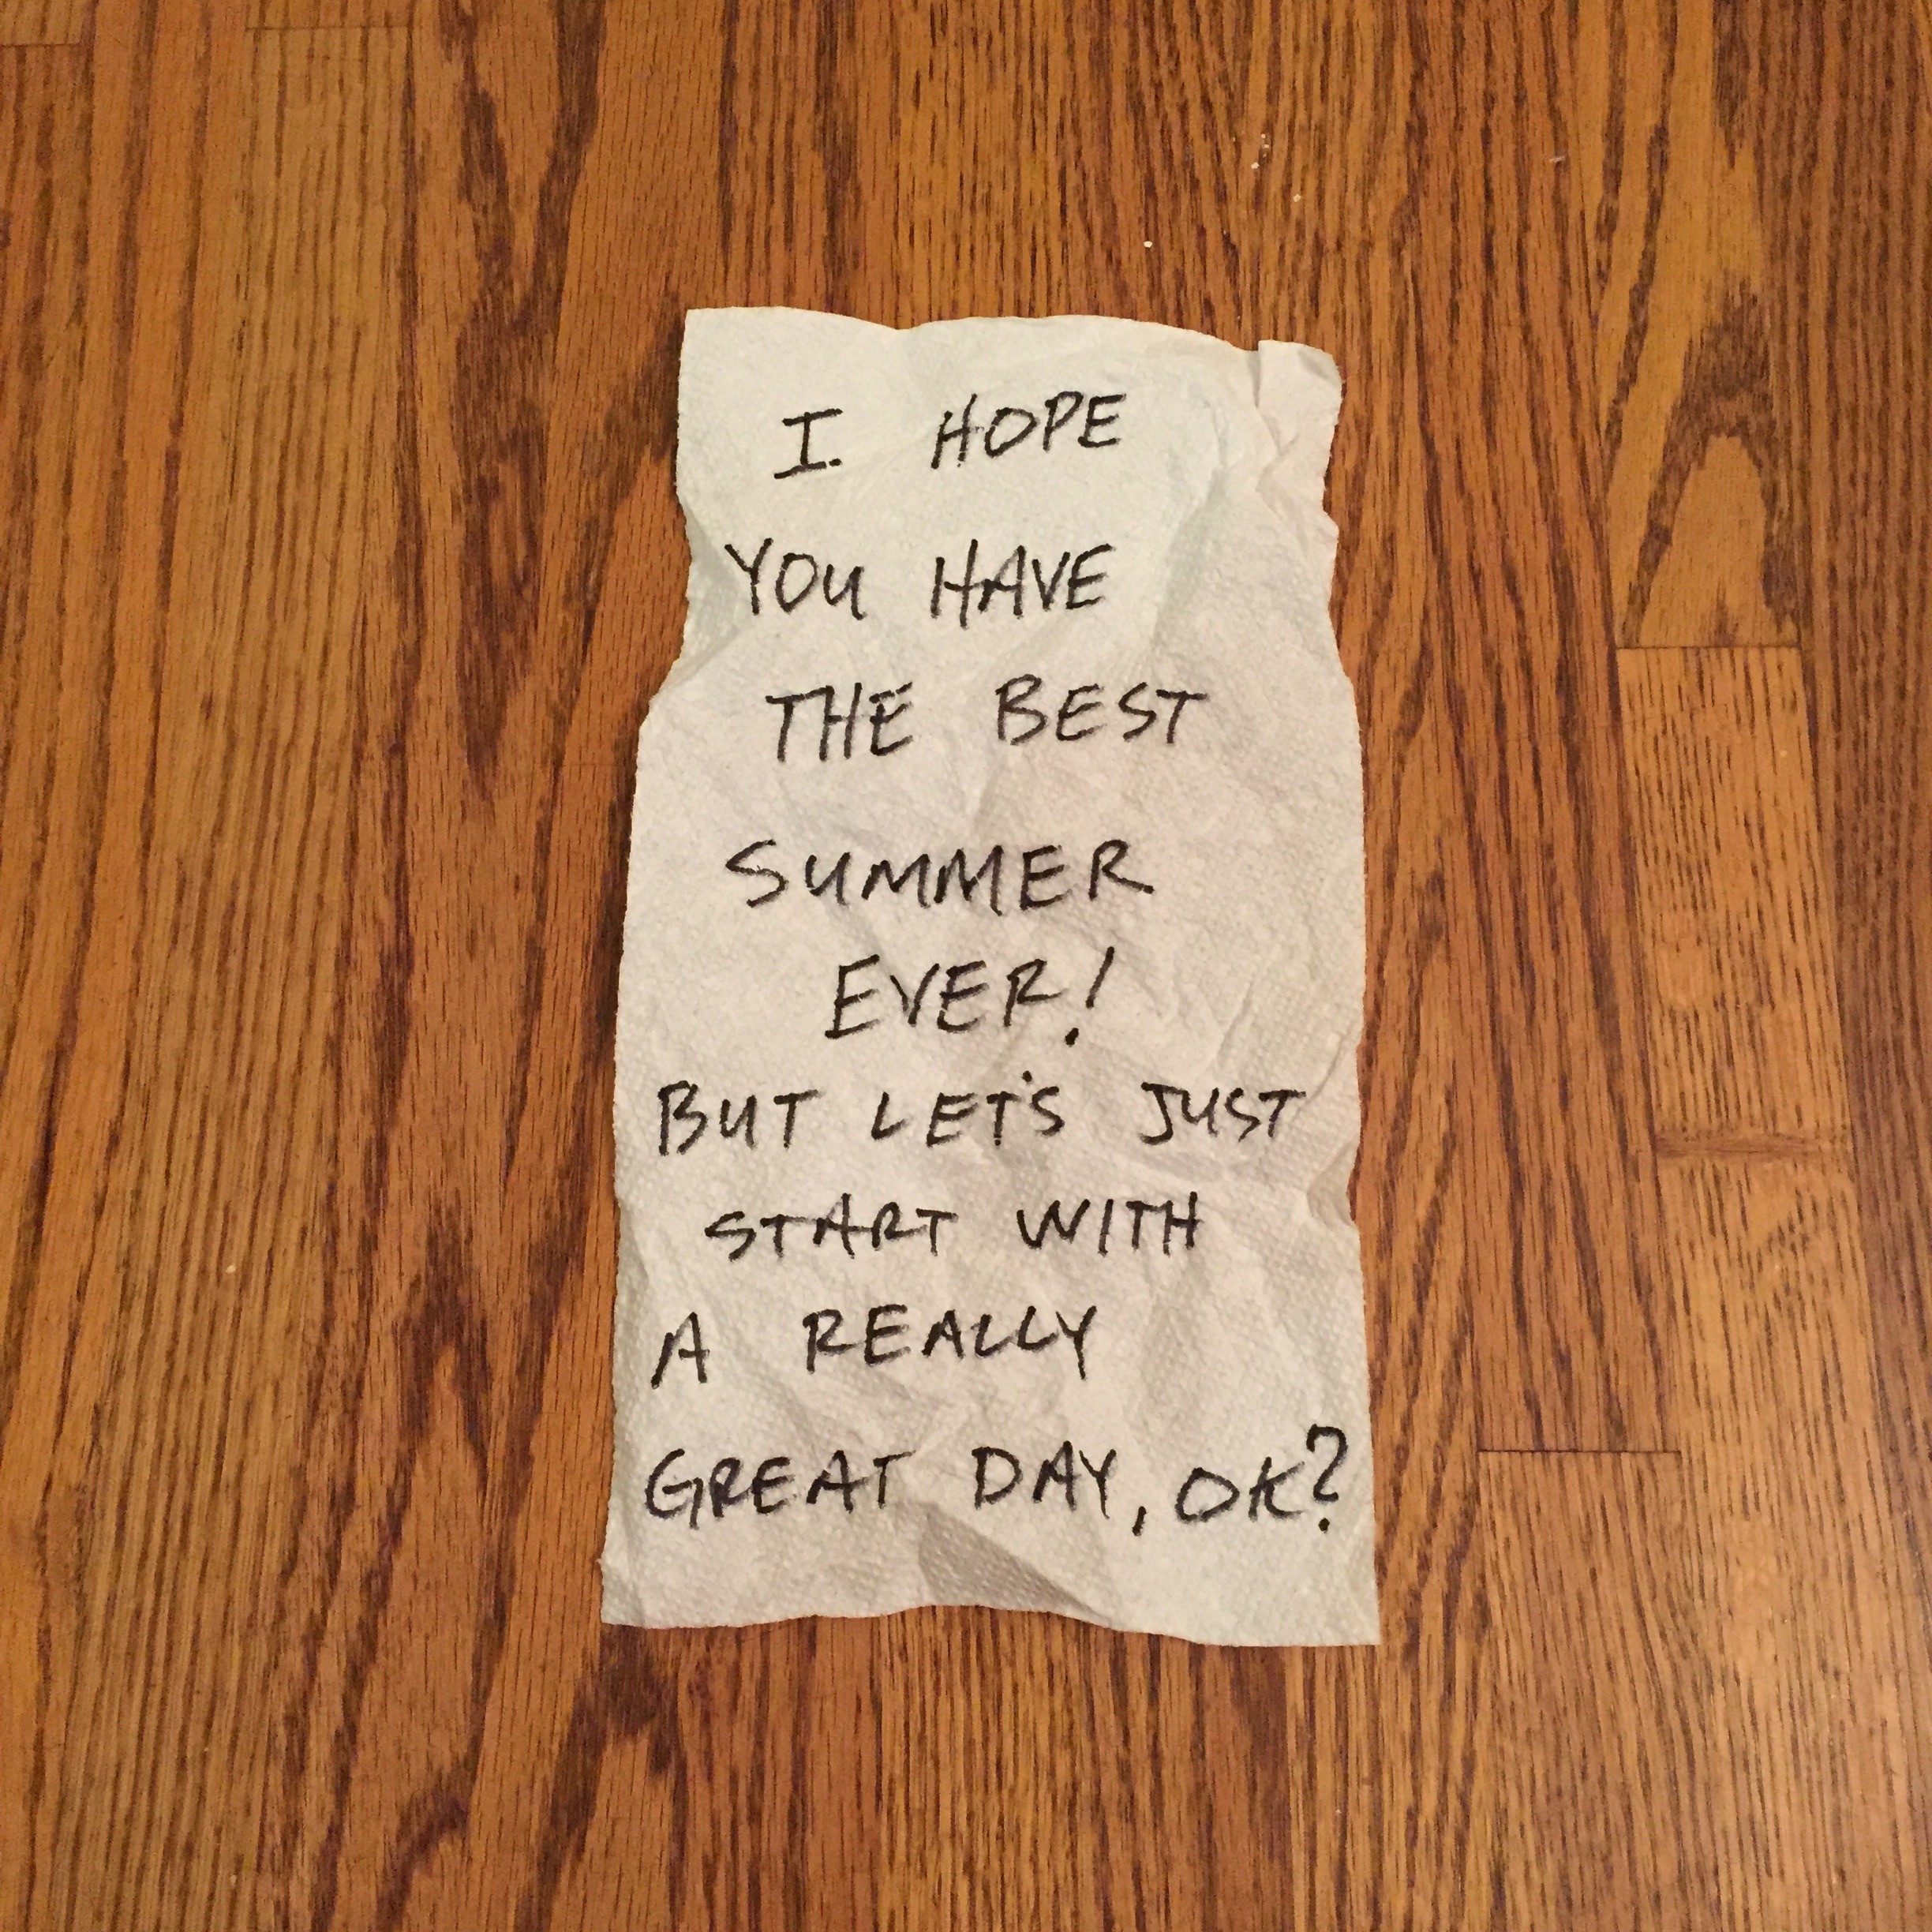 I HOPE
YOU HAVE
THE BEST
SUMMER
EVER!
BUT LET'S JUST
START WITH
A REALLY
GREAT DAY, OK?